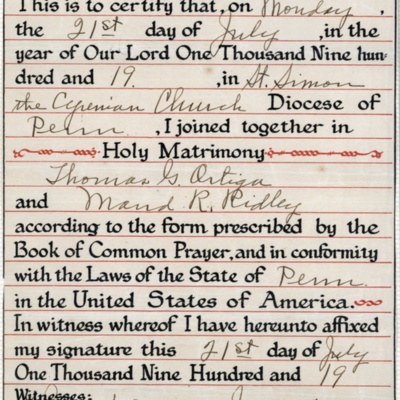 This is to certify that, on Monday,
the 21st day of July, in the
year of Our Lord One Thousand Nine hun-
dred and 19, in St. Simon
the Cyrenian Church Diocese of
Penn, I joined together in
Holy Matrimony
Thomas G. Ortiga
and Maud R. Ridley
according to the form prescribed by the
Book of Common Prayer, and in conformity
with the Laws of the State of Penn
in the United States of America.
In witness whereof I have hereunto affixed
my signature this 21st day of July
One Thousand Nine Hundred and 19
Witnesses: